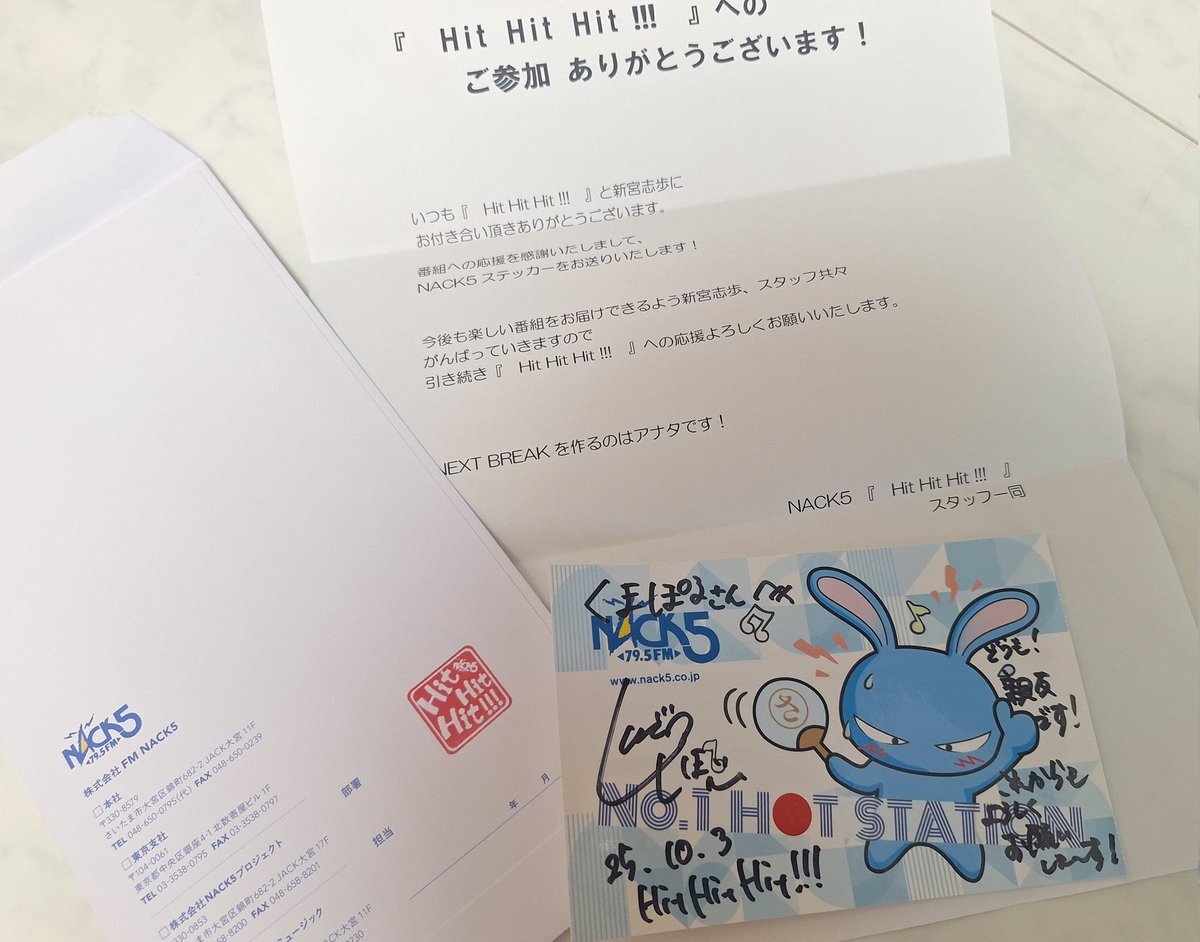 『 Hit Hit Hit !!! 』への
ご参加 ありがとうございます！
いつも『 Hit Hit Hit !!! 』と新宮志歩に
お付き合い頂きありがとうございます。
番組への応援を感謝いたしまして、
NACK5 ステッカーをお送りいたします！
今後も楽しい番組をお届けできるよう新宮志歩、スタッフ共々
がんばっていきますので
引き続き『 Hit Hit Hit !!! 』への応援よろしくお願いいたします。
NEXT BREAK を作るのはアナタです！
NACK5 『 Hit Hit Hit !!! 』
スタッフ一同
NACK5
79.5FM
株式会社 FM NACK5
□ 本社
〒330-8579
さいたま市大宮区錦町682-2 JACK大宮 11F
TEL 048-650-0795(代) FAX 048-650-0239
□ 東京支社
〒104-0061
東京都中央区銀座4-1 北数寄屋ビル1F
TEL 03-3538-0795 FAX 03-3538-0797
□ 株式会社NACK5プロジェクト
330-0853
さいたま市大宮区錦町682-2 JACK大宮 17F
8200 FAX 048-658-8201
ミュージック
11F
0730
NACK5
Hit Hit Hit!!!
部署
担当
年 月
くまぽるさんへ
NACK5
79.5FM
www.nack5.co.jp
さ
どうも！
親友
です！
これからも
よろしく
お願い
しまーす！
NO.1 HOT STATION
25.10.3
Hit Hit Hit!!!